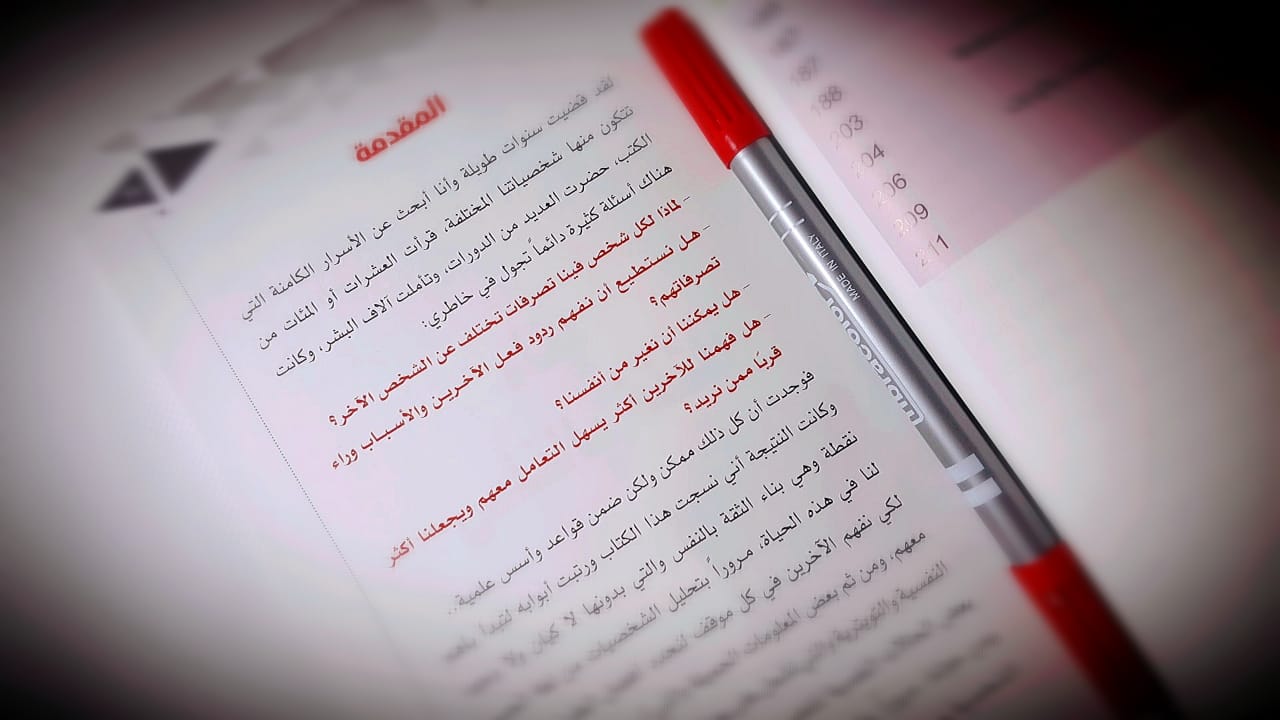 المقدمة
لقد قضيت سنوات طويلة وأنا أبحث عن الأسرار الكامنة التي
تتكون منها شخصياتنا المختلفة، قرأت العشرات أو المئات من
الكتب، حضرت العديد من الدورات، وتأملت آلاف البشر، وكانت
هناك أسئلة كثيرة دائماً تجول في خاطري:
- لماذا لكل شخص فينا تصرفات تختلف عن الشخص الآخر؟
- هل نستطيع أن نفهم ردود فعل الآخرين والأسباب وراء
تصرفاتهم؟
- هل يمكننا أن نغير من أنفسنا؟
- هل فهمنا للآخرين أكثر يسهل التعامل معهم ويجعلنا أكثر
قربًا ممن نريد؟
فوجدت أن كل ذلك ممكن ولكن ضمن قواعد وأسس علمية..
وكانت النتيجة أني نسجت هذا الكتاب ورتبت أبوابه لتبدأ بأهم
نقطة وهي بناء الثقة بالنفس والتي بدونها لا كيان ولا
لنا في هذه الحياة، مروراً بتحليل الشخصيات من
لكي نفهم الآخرين في كل موقف
معهم، ومن ثم بعض المعلومات
النفسية
بعض الحالات
187
188
203
204
206
209
211
MADE IN ITALY
fibracolor